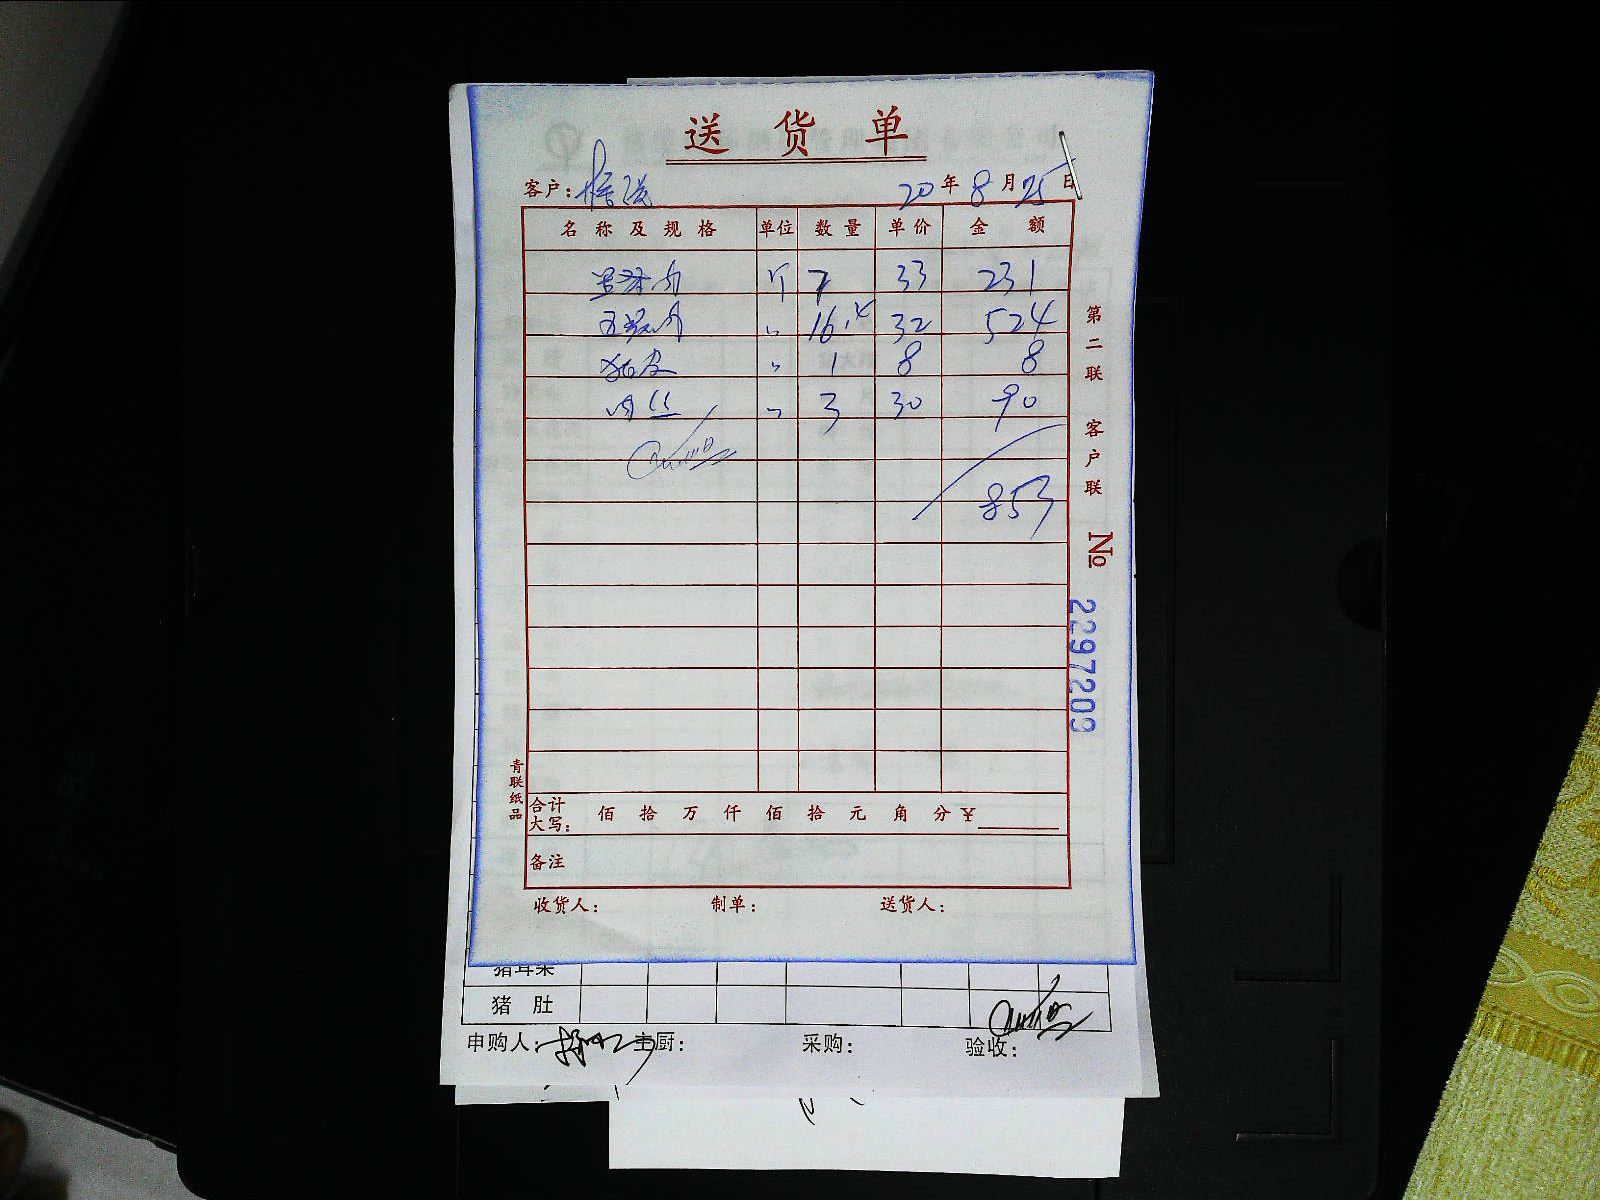 送货单
客户: 20年8月25日
名称及规格 单位 数量 单价 金额
7 33 231
五花肉 〃 16.4 32 524
猪皮 〃 1 8 8
肉丝 〃 3 30 90
853
合计大写: 佰 拾 万 仟 佰 拾 元 角 分 ¥
备注
收货人: 制单: 送货人:
第二联 客户联
No 2297209
青联纸品
猪耳朵
猪肚
申购人: 主厨: 采购: 验收: